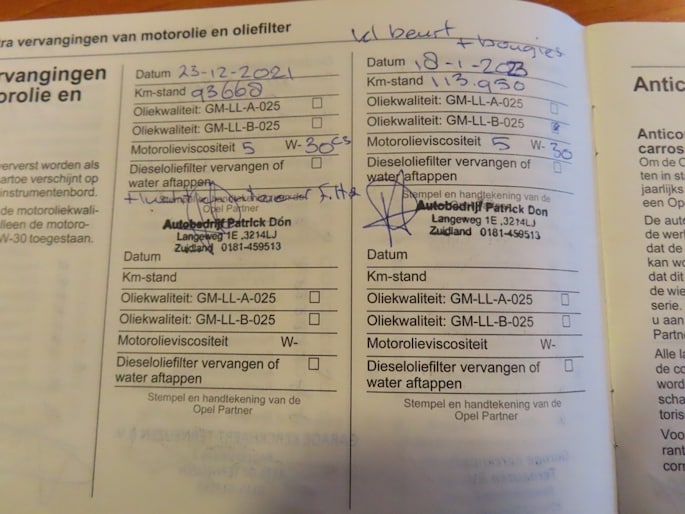 tra vervangingen van motorolie en oliefilter
kl beurt
+ bougies
rvangingen
orolie en
ververst worden als
artoe verschijnt op
instrumentenbord.
de motoroliekwali-
lleen de motoro-
W-30 toegestaan.
Datum 23-12-2021
Km-stand 93668
Oliekwaliteit: GM-LL-A-025
Oliekwaliteit: GM-LL-B-025
Motorolieviscositeit 5 W-30
Dieseloliefilter vervangen of
water aftappen
Opel Partner
Autobedrijf Patrick Don
Langeweg 1E ,3214LJ
Zuidland 0181-459513
Datum
Km-stand
Oliekwaliteit: GM-LL-A-025
Oliekwaliteit: GM-LL-B-025
Motorolieviscositeit W-
Dieseloliefilter vervangen of
water aftappen
Stempel en handtekening van de
Opel Partner
Datum 18-1-2023
Km-stand 113.930
Oliekwaliteit: GM-LL-A-025
Oliekwaliteit: GM-LL-B-025
Motorolieviscositeit 5 W-30
Dieseloliefilter vervangen of
water aftappen
Stempel en handtekening van de
Autobedrijf Patrick Don
Langeweg 1E ,3214LJ
Zuidland 0181-459513
Datum
Km-stand
Oliekwaliteit: GM-LL-A-025
Oliekwaliteit: GM-LL-B-025
Motorolieviscositeit W-
Dieseloliefilter vervangen of
water aftappen
Stempel en handtekening van de
Opel Partner
Antic
Antico
carros
Om de C
ten in st
jaarlijks
een Op
De aut
de wer
dat de
kan wo
dat dit
de wie
serie.
u aan
Partn
Alle la
de co
word
scha
toris
Voo
rant
corr